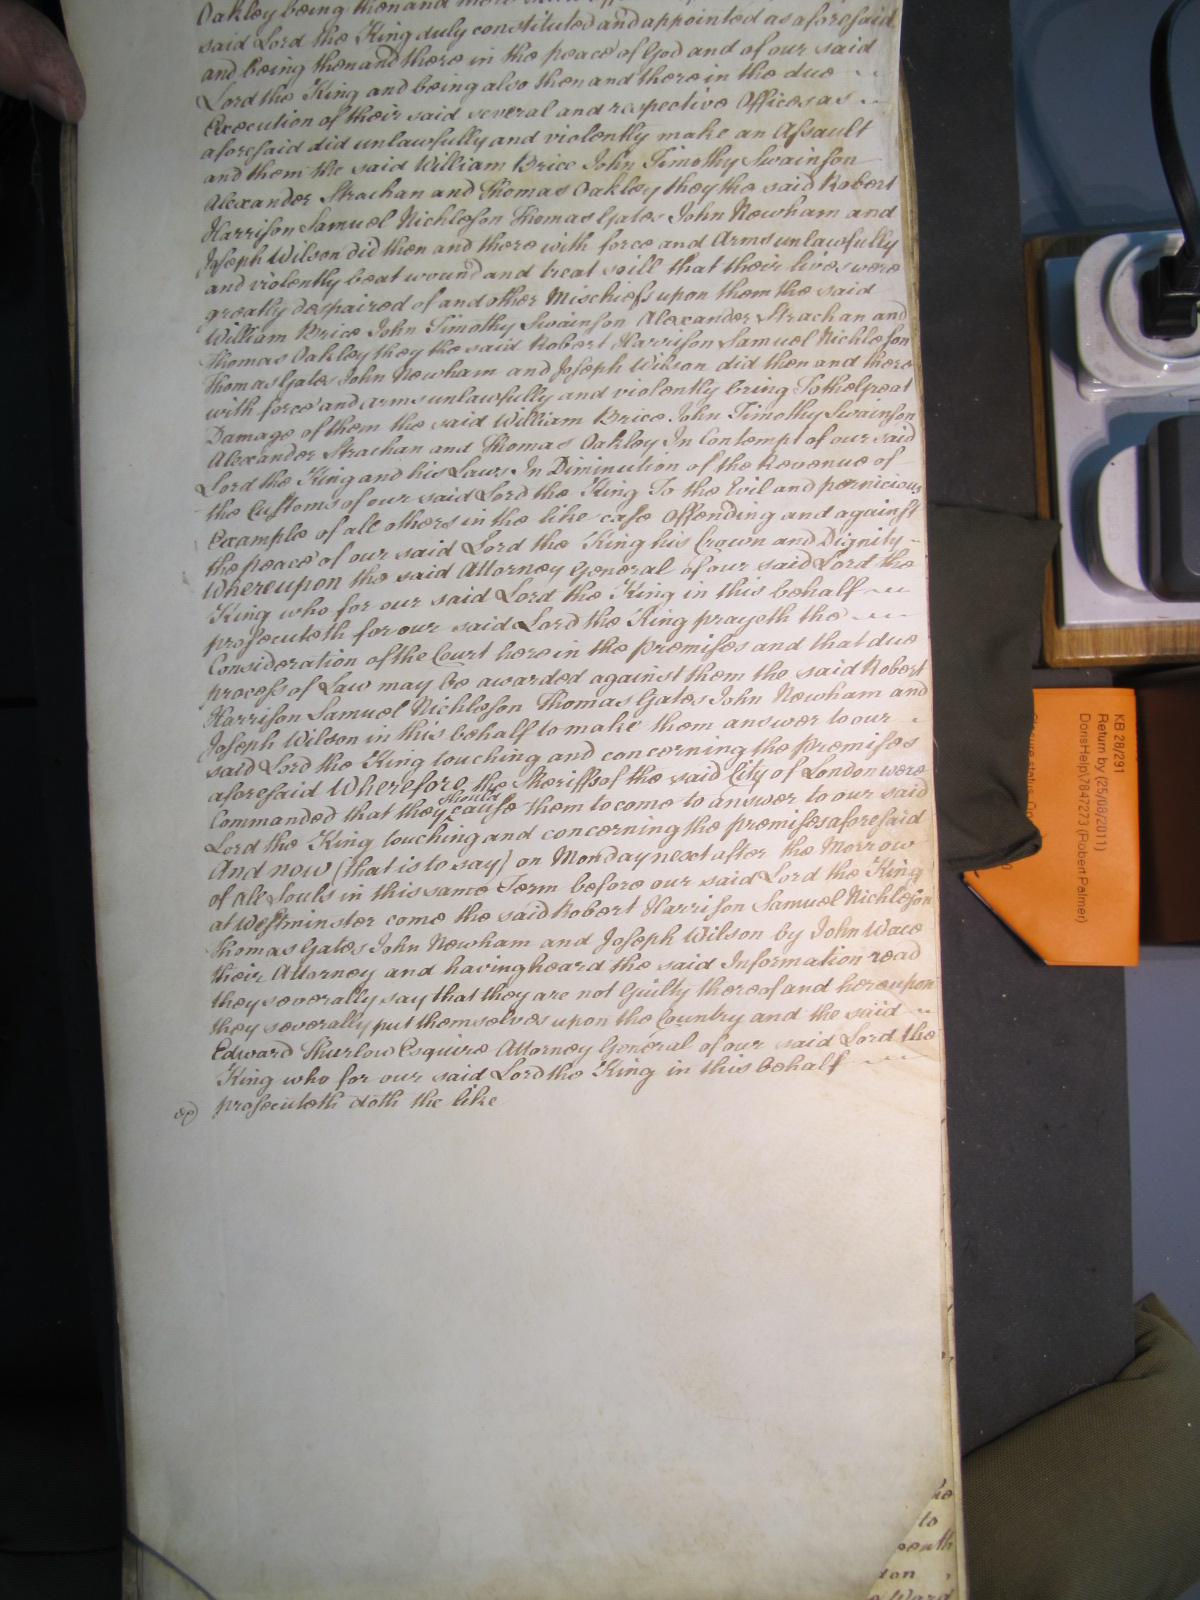 Oakley being then and
said Lord the King duly constituted and appointed as aforesaid
and being then and there in the peace of God and of our said
Lord the King and being also then and there in the due
Execution of their said several and respective Offices as
aforesaid did unlawfully and violently make an Assault
and them the said William Brice John Timothy Swainson
Alexander Strachan and Thomas Oakley they the said Robert
Harrison Samuel Nichleson Thomas Gates John Newham and
Joseph Wilson did then and there with force and Arms unlawfully
and violently beat wound and treat soill that their lives were
greatly despaired of and other Mischiefs upon them the said
William Brice John Timothy Swainson Alexander Strachan and
Thomas Oakley they the said Robert Harrison Samuel Nichleson
Thomas Gates John Newham and Joseph Wilson did then and there
with force and arms unlawfully and violently bring To the Great
Damage of them the said William Brice John Timothy Swainson
Alexander Strachan and Thomas Oakley In Contempt of our said
Lord the King and his Laws In Diminution of the Revenue of
the Customs of our said Lord the King To the Evil and pernicious
Example of all others in the like case Offending and against
the peace of our said Lord the King his Crown and Dignity
Whereupon the said Attorney General of our said Lord the
King who for our said Lord the King in this behalf
prosecuteth for our said Lord the King prayeth the
Consideration of the Court here in the premises and that due
process of Law may be awarded against them the said Robert
Harrison Samuel Nichleson Thomas Gates John Newham and
Joseph Wilson in this behalf to make them answer to our
said Lord the King touching and concerning the premises
aforesaid Wherefore the Sheriffs of the said City of London were
Commanded that they should cause them to come to answer to our said
Lord the King touching and concerning the premises aforesaid
And now (that is to say) on Monday next after the Morrow
of all Souls in this same Term before our said Lord the King
at Westminster come the said Robert Harrison Samuel Nichleson
Thomas Gates John Newham and Joseph Wilson by John Wace
their Attorney and having heard the said Information read
they severally say that they are not Guilty thereof and hereupon
they severally put themselves upon the Country and the said
Edward Thurlow Esquire Attorney General of our said Lord the
King who for our said Lord the King in this behalf
prosecuteth doth the like
KB 28/291
Return by (25/08/2011)
DorisHelp\7847273 (Robert Palmer)
to